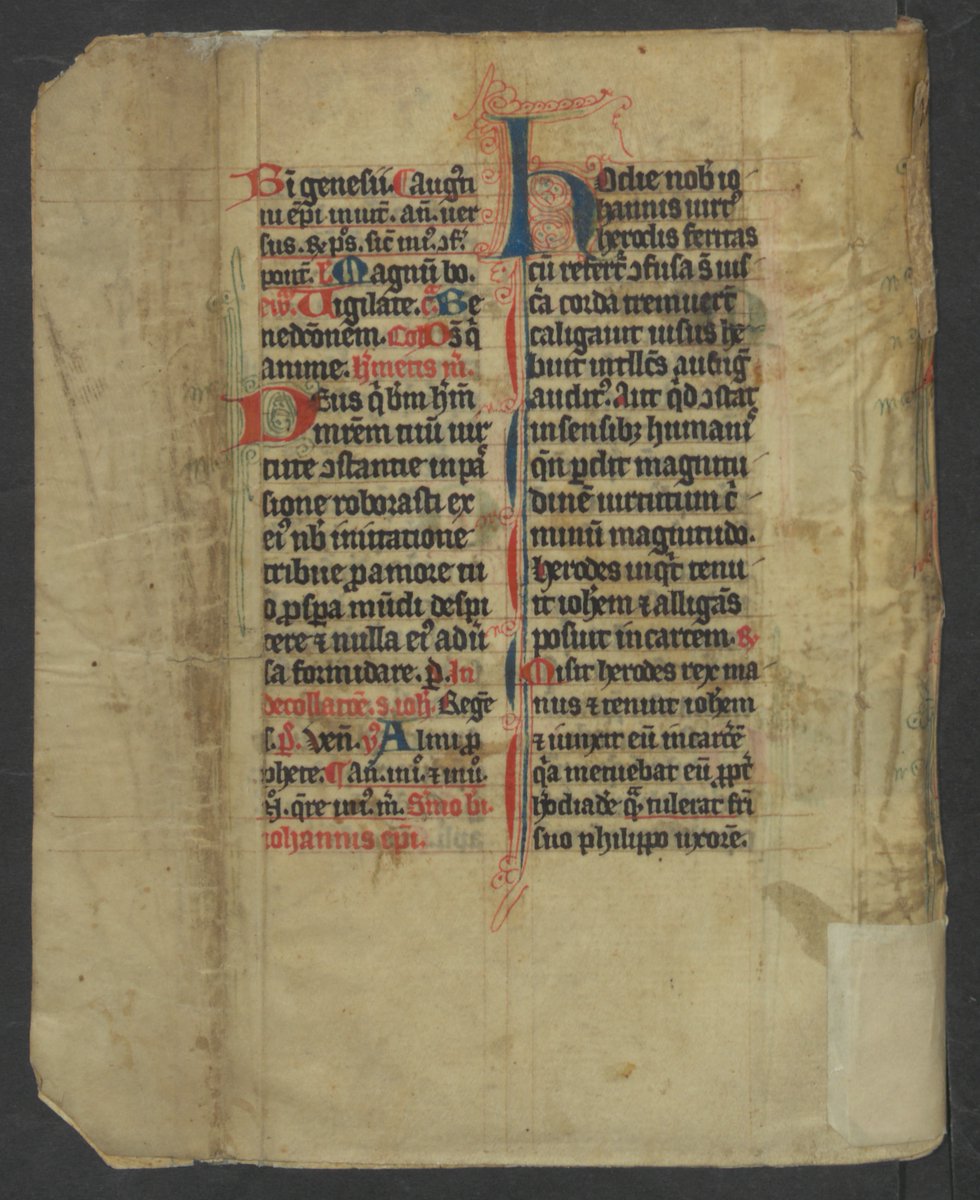 Bi genesii. Augꝰti
ni ep̄i inuit̄. an̄. uer
sus. & p̄s. sic̄ miꝰ. ↄf̄.
pont̄. Magnū bo.
Uigilate. Be
nedc̄onem. Os̄ q̄
anime. h̄metis m̄.
Deus q̄ b̄m h̄m̄
mr̄em tuū uir
tute ↄstantie in pā
sione roborasti ex
eiꝰ nb̄ imitatione
tribue ꝓ amore tu
o ꝓspa mūdi despi
cere ⁊ nulla eiꝰ aduͥ
sa formidare. p̄. In
decollatōe. s. ioh̄. Regē
s. p̄. Ven̄. v̄ Almi ꝓ
phete. An̄. inꝰ. ⁊ mꝰ.
q̄re m̄. Sermo bi.
iohannis ep̄i.
Hodie nob̄ io
hannis uirtꝰ
herodis feritas
cū refert̄ ↄfusa s̄ uis
c̄a corda tremuert̄
caligauit uisus he
buit intll̄cs aufuḡ
auditꝰ. Aut q̄d ↄstat
in sensibꝫ humaniꝰ
qn̄ ꝑdit magnitu
dinē uirtutum c̄
minū magnitudo.
herodes uiq̄t tenu
it ioh̄em ⁊ alligās
posuit in carcem. &.
Misit herodes rex ma
nus ⁊ tenuit ioh̄em
⁊ uinxit eū in carc̄ē
q̄a metuebat eū ꝓpt̄
h̄odiadē q̄ tulerat fr̄i
suo philippo uxorē.